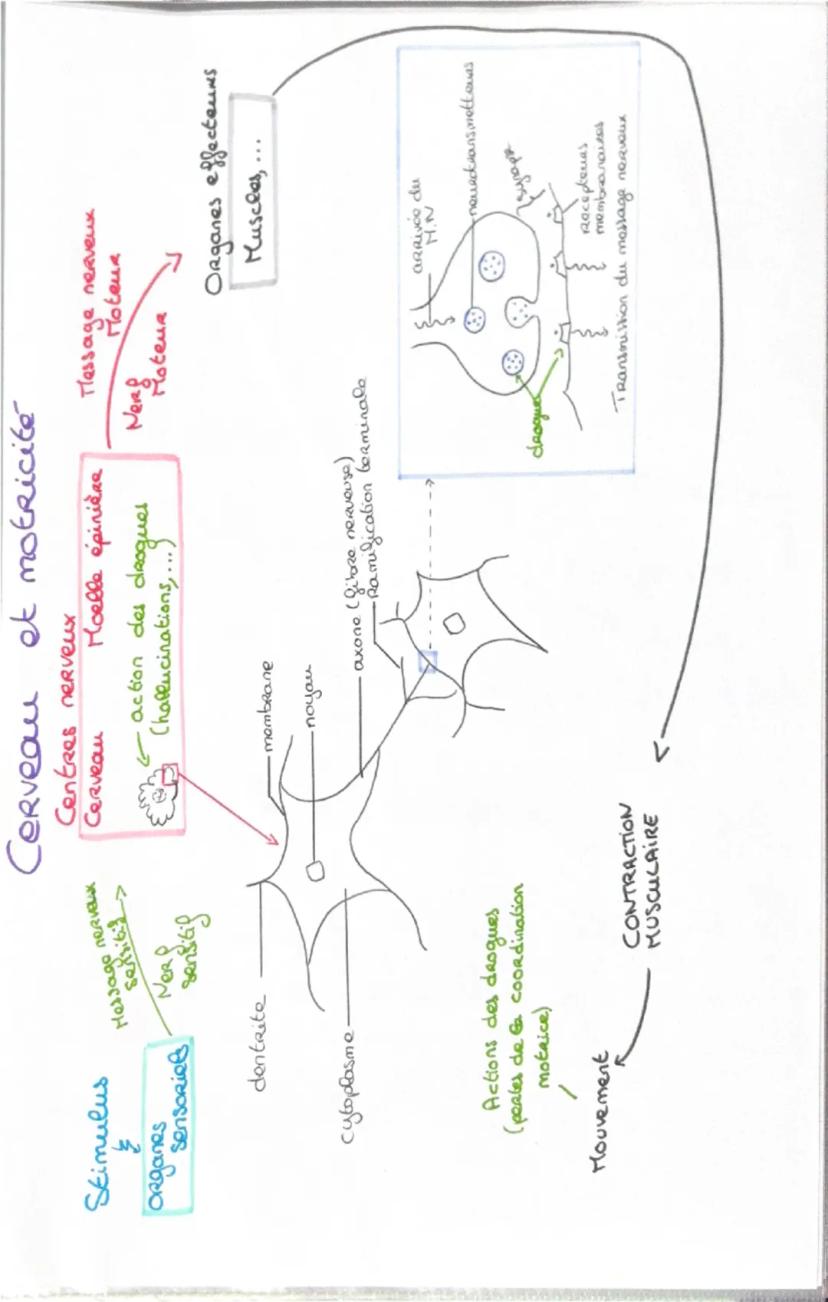 Cerveau et motricité
Stimulus
&
Organes
sensoriels
Message nerveux
sensitif
Nerf
sensitif
Centres nerveux
Cerveau Moelle épinière
action des drogues
(hallucinations,...)
Message nerveux
Moteur
Nerf
Moteur
Organes effecteurs
Muscles,...
dentrite
cytoplasme
membrane
noyau
axone (fibre nerveuse)
Ramification terminale
arrivée du
M.N
neurotransmetteurs
synapse
récepteurs
membranaires
drogues
Transmission du message nerveux
Actions des drogues
(pertes de la coordination
motrice)
Mouvement
CONTRACTION
MUSCULAIRE